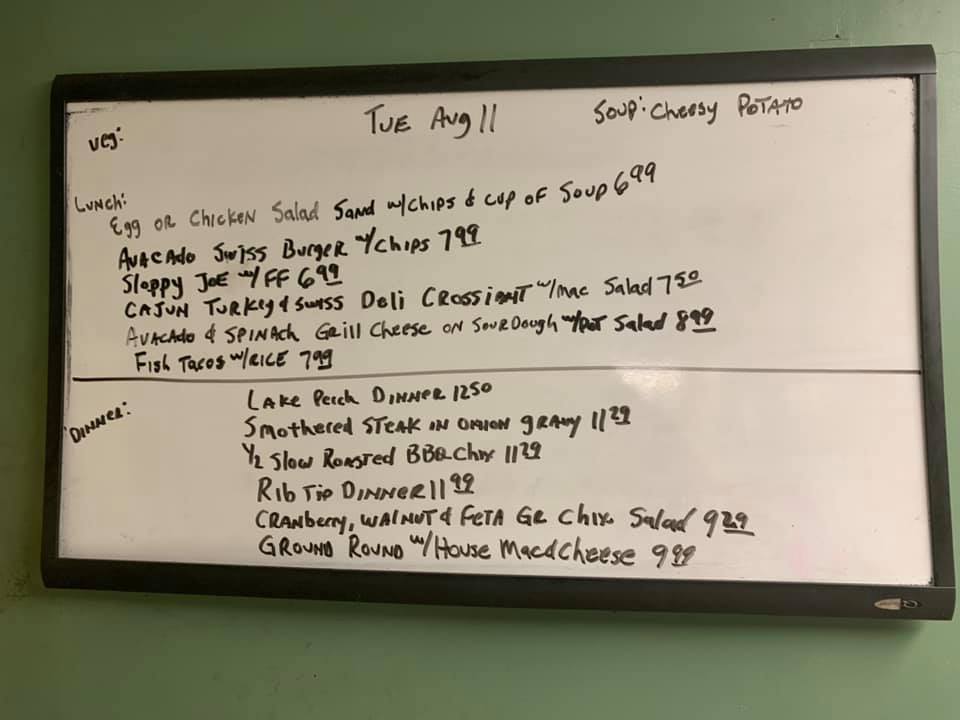 TUE Aug 11
Soup: Cheesy Potato
Veg:
Lunch:
Egg or Chicken Salad Sand w/chips & cup of Soup 6 99
Avacado Swiss Burger w/chips 7 99
Sloppy Joe w/FF 6 99
Cajun Turkey & Swiss Deli Crossiant w/mac Salad 7 50
Avacado & Spinach Grill Cheese on SourDough w/Pot Salad 8 99
Fish Tacos w/Rice 7 99
Dinner:
Lake Perch Dinner 12 50
Smothered Steak in onion gravy 11 29
1/2 Slow Roasted BBQ Chix 11 29
Rib Tip Dinner 11 99
Cranberry, Walnut & Feta Gr Chix Salad 9 29
Ground Round w/House Mac & Cheese 9 99